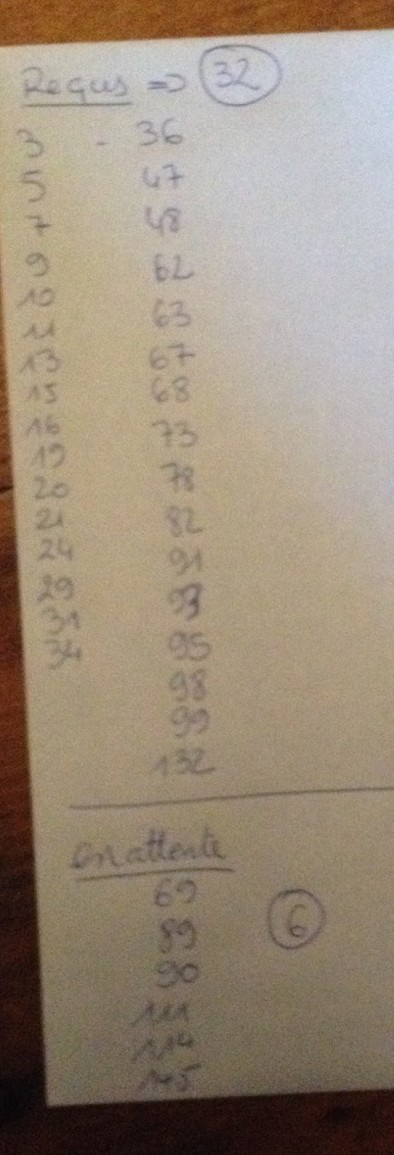 Reçus => 32
3 - 36
5 47
7 48
9 62
10 63
11 67
13 68
15 73
16 78
19 82
20 91
21 93
24 95
29 98
31 99
34 132
En attente
69
89 6
90
111
114